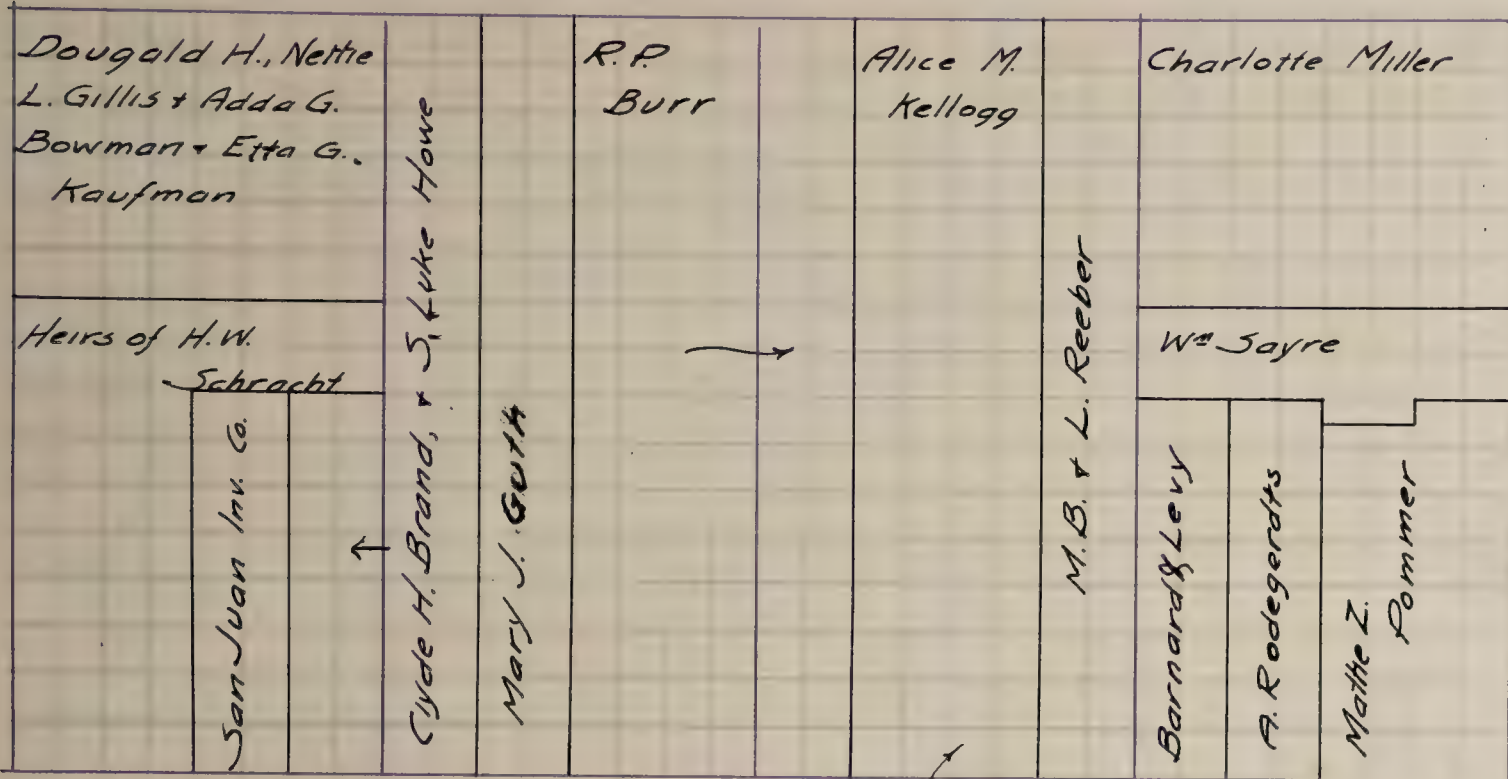 Dougald H., Nettie
L. Gillis & Adda G.
Bowman & Etta G.
Kaufman
Heirs of H.W.
Schracht
San Juan Inv. Co.
Clyde H. Brand, & S. Luke Howe
Mary J. Guth
R.P.
Burr
Alice M.
Kellogg
M.B. & L. Reeber
Charlotte Miller
Wm Sayre
Barnard & Levy
A. Rodegerdts
Mathe Z.
Pommer